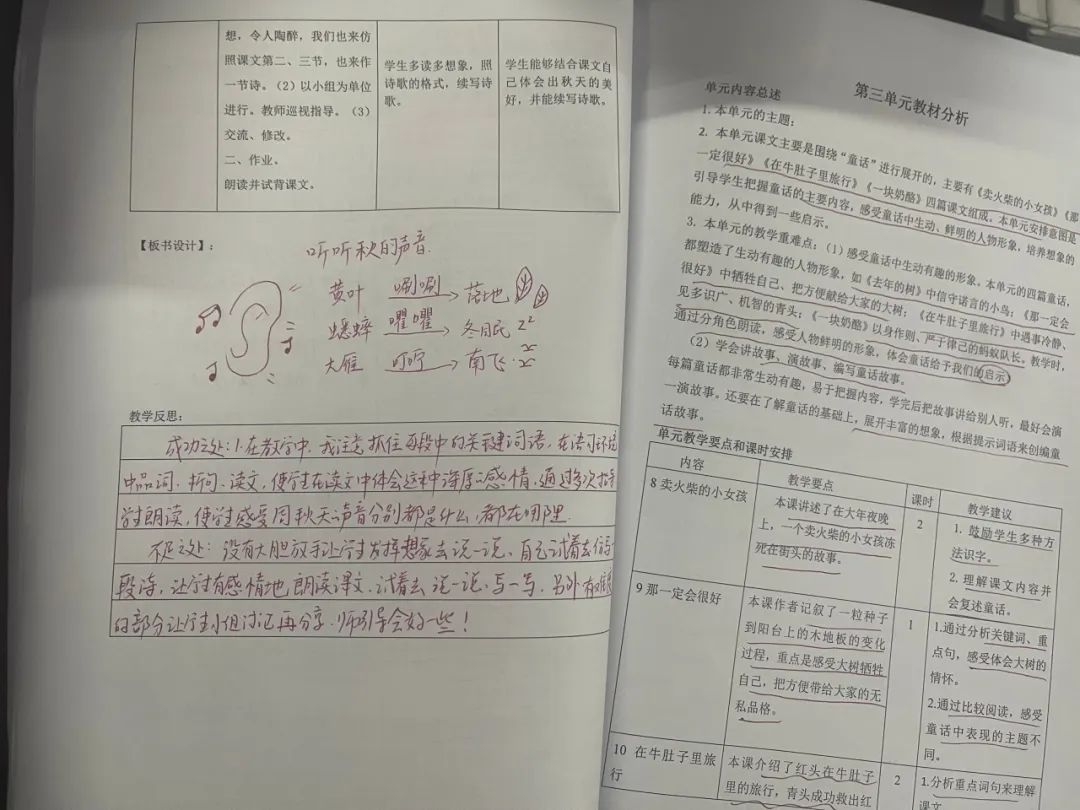 想，令人陶醉，我们也来仿
照课文第二、三节，也来作
一节诗。（2）以小组为单位
进行。教师巡视指导。（3）
交流、修改。
二、作业。
朗读并试背课文。
学生多读多想象，照
诗歌的格式，续写诗
歌。
学生能够结合课文自
己体会出秋天的美
好，并能续写诗歌。
【板书设计】：
听听秋的声音
黄叶 唰唰 落地
蟋蟀 㘗㘗 冬眠 zz
大雁 叮咛 南飞
教学反思：
成功之处：1.在教学中，我注意抓住每段中的关键词语，在语言环境
中品词、析句、读文，使学生在读文中体会这种深厚的感情，通过多次指导
学生朗读，使学生感受同秋天的声音分别都是什么，都在哪里。
不足之处：没有大胆放手让学生发挥想象去说一说，自己试着去仿写
段诗，让学生有感情地朗读课文，试着去说一说、写一写，另外有难度
的部分让学生小组讨论再分享，师引导会好一些！
第三单元教材分析
单元内容总述
1. 本单元的主题：
2. 本单元课文主要是围绕“童话”进行展开的，主要有《卖火柴的小女孩》《那
一定很好》《在牛肚子里旅行》《一块奶酪》四篇课文组成。本单元安排意图是
引导学生把握童话的主要内容，感受童话中生动、鲜明的人物形象，培养想象的
能力，从中得到一些启示。
3. 本单元的教学重难点：（1）感受童话中生动有趣的形象，本单元的四篇童话，
都塑造了生动有趣的人物形象，如《去年的树》中信守诺言的小鸟；《那一定会
很好》中牺牲自己、把方便献给大家的大树；《在牛肚子里旅行》中遇事冷静、
见多识广、机智的青头；《一块奶酪》以身作则、严于律己的蚂蚁队长。教学时，
通过分角色朗读，感受人物鲜明的形象，体会童话给予我们的启示
（2）学会讲故事、演故事、编写童话故事。
每篇童话都非常生动有趣，易于把握内容，学完后把故事讲给别人听，最好会演
一演故事。还要在了解童话的基础上，展开丰富的想象，根据提示词语来创编童
话故事。
单元教学要点和课时安排
内容 教学要点 课时 教学建议
8 卖火柴的小女孩
本课讲述了在大年夜晚
上，一个卖火柴的小女孩冻
死在街头的故事。
2
1. 鼓励学生多种方
法识字。
2. 理解课文内容并
会复述童话。
9 那一定会很好
本课作者记叙了一粒种子
到阳台上的木地板的变化
过程，重点是感受大树牺牲
自己，把方便带给大家的无
私品格。
1
1.通过分析关键词、重
点句，感受体会大树的
情怀。
2.通过比较阅读，感受
童话中表现的主题不
同。
10 在牛肚子里旅
行
本课介绍了红头在牛肚子
里的旅行，青头成功救出红
2
1.分析重点词句来理解
课文